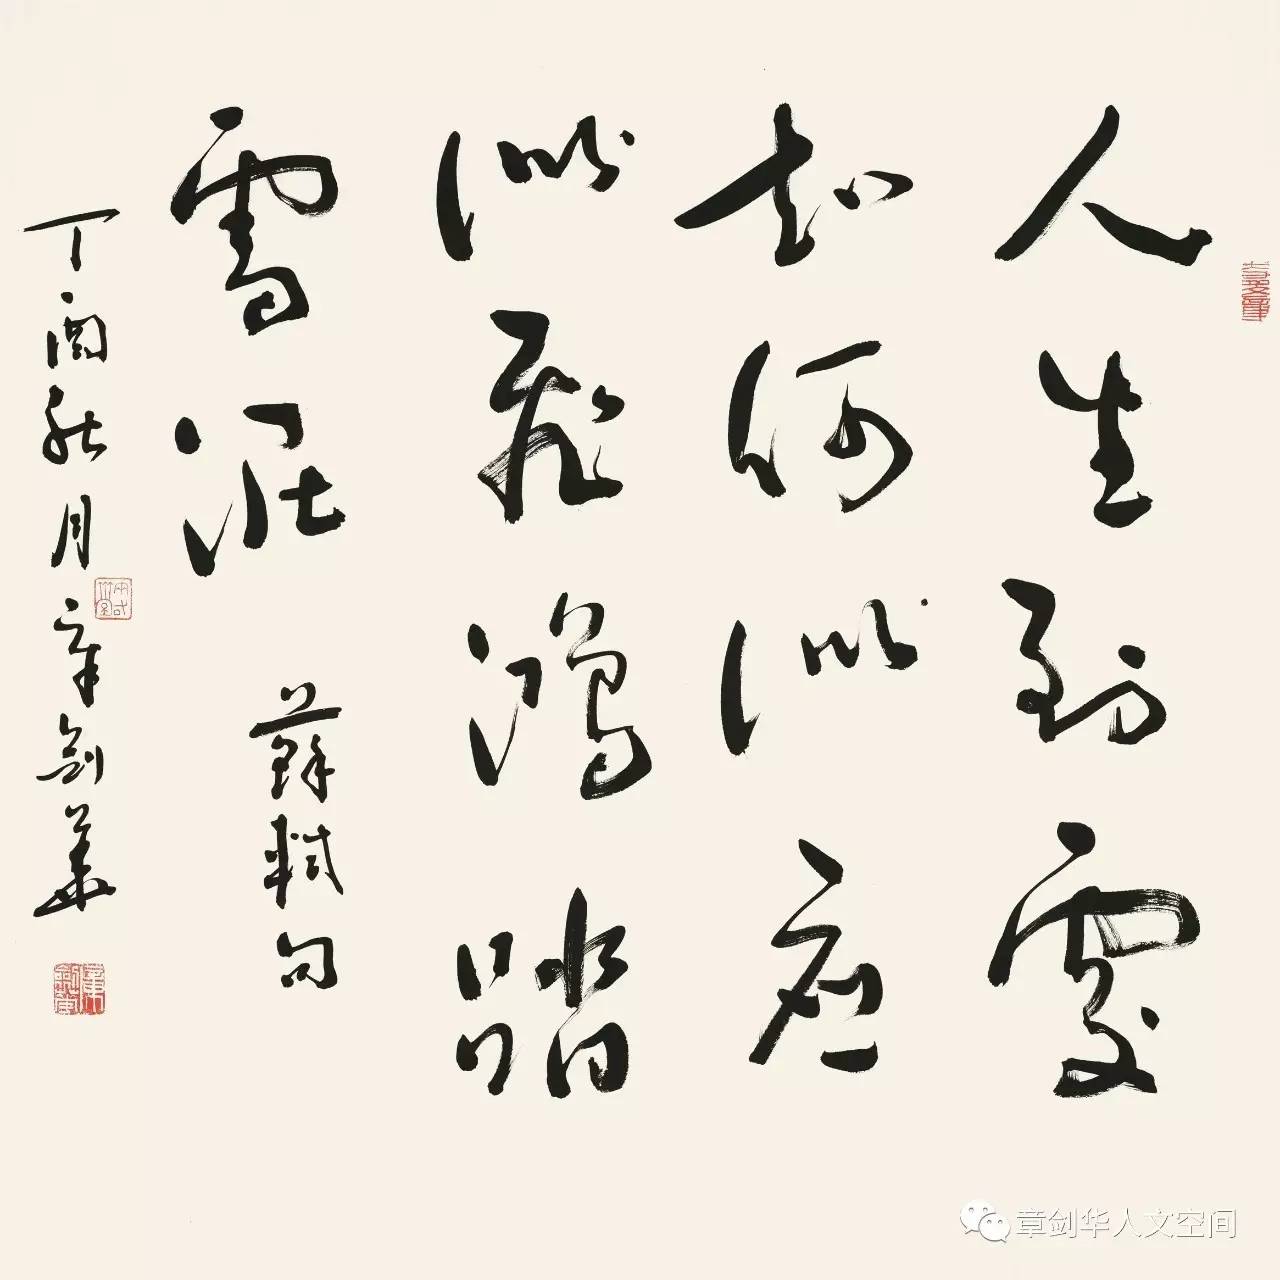 人生到處
知何似應
似飛鴻踏
雪泥 蘇軾句
丁酉秋月 章劍華
章剑华人文空间